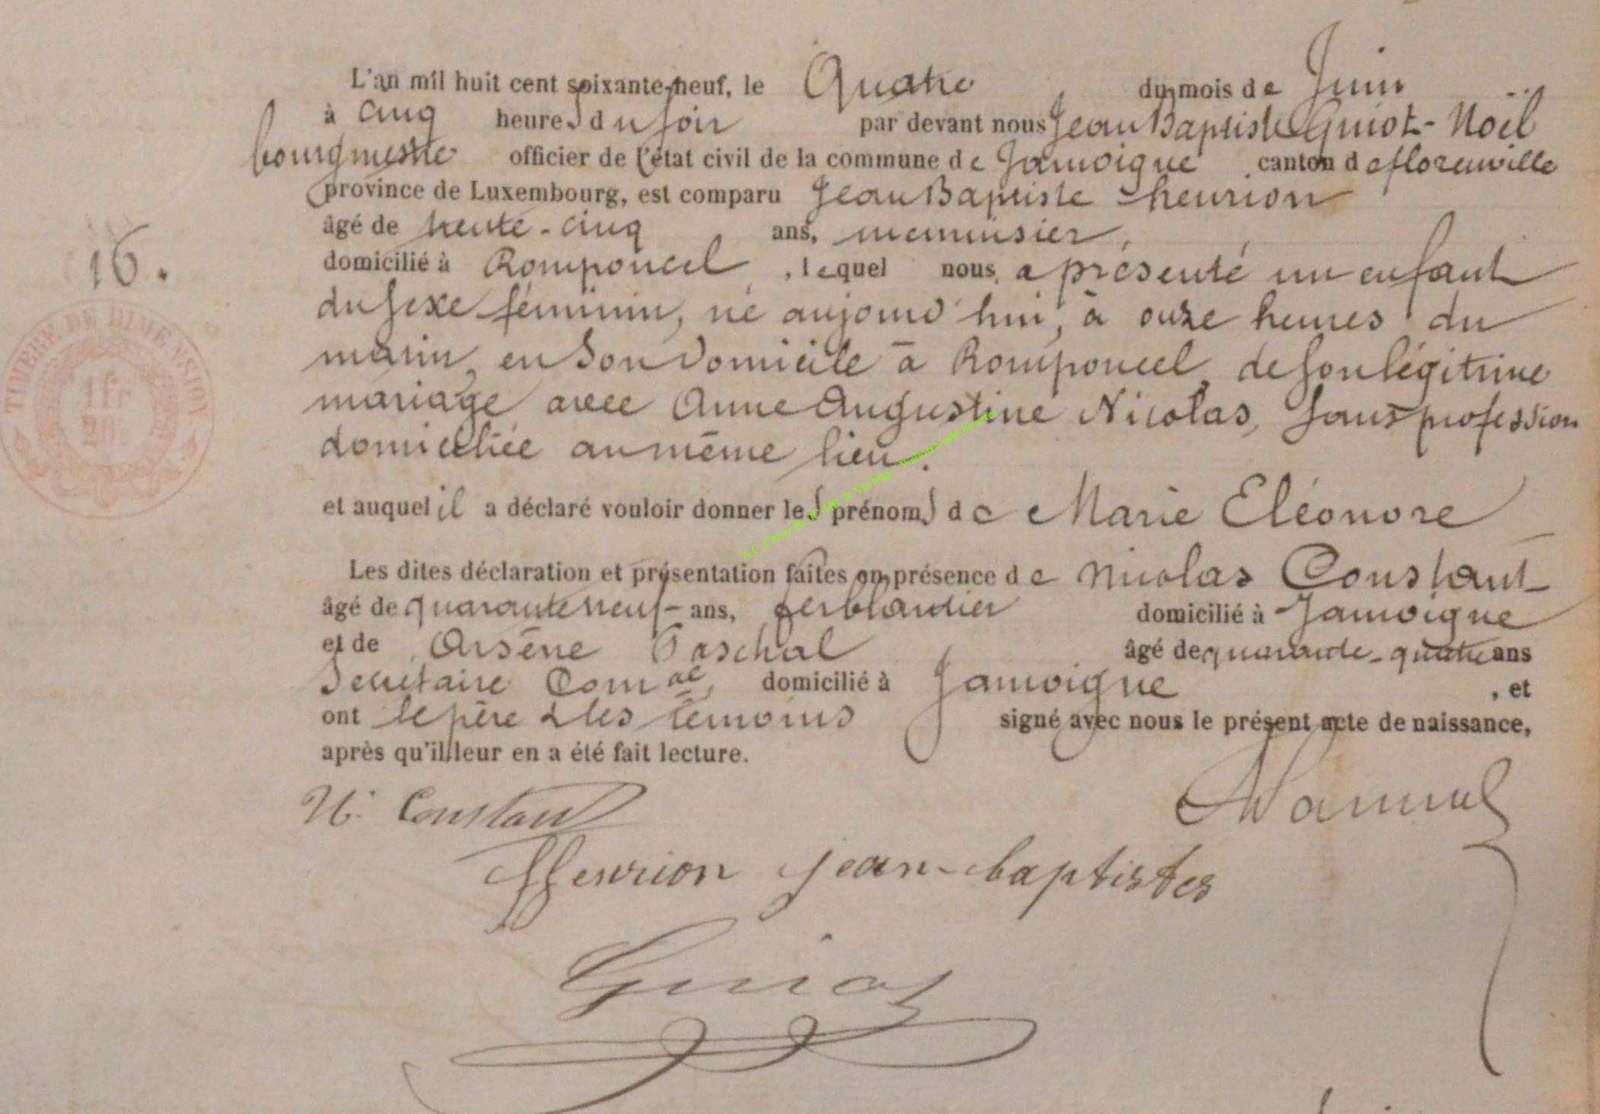 L'an mil huit cent soixante-neuf, le Quatre du mois de Juin
à cinq heures du soir par devant nous Jean Baptiste Guiot-Noël
bourgmestre officier de l'état civil de la commune de Jamoigne canton de florenville
province de Luxembourg, est comparu Jean Baptiste henrion
âgé de trente-cinq ans, menuisier,
domicilié à Romponcel, lequel nous a présenté un enfant
16.
du sexe féminin, né aujourd'hui, à onze heures du
matin, en son domicile à Romponcel, de son légitime
TIMBRE DE DIMENSION
1 fr
20
mariage avec Anne Augustine Nicolas, sans profession
domiciliée au même lieu.
et auquel il a déclaré vouloir donner les prénoms de Marie Eléonore
Les dites déclaration et présentation faites en présence de Nicolas Constant
âgé de quarante neuf ans, ferblantier domicilié à Jamoigne
et de Arsène Paschal âgé de quarante-quatre ans
Secrétaire Comal, domicilié à Jamoigne, et
ont le père & les témoins signé avec nous le présent acte de naissance,
après qu'il leur en a été fait lecture.
N. Constant
Henrion jean-baptistes
Guiot